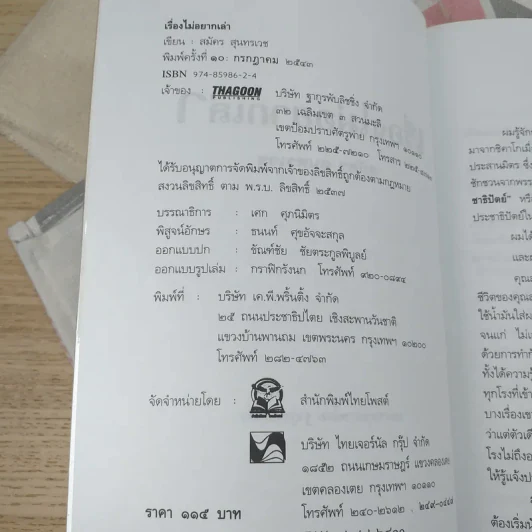 เรื่องไม่อยากเล่า
เขียน : สมัคร สุนทรเวช
พิมพ์ครั้งที่ ๑๐: กรกฎาคม ๒๕๔๓
ISBN 974-85986-2-4
เจ้าของ : THAGOON บริษัท ฐากูรพับลิชชิ่ง จำกัด
PUBLISHING
๓๒ เฉลิมเขต ๓ สวนมะลิ
เขตป้อมปราบศัตรูพ่าย กรุงเทพฯ ๑๐๑๑๐
โทรศัพท์ ๒๒๕-๗๒๑๐ โทรสาร
ได้รับอนุญาตการจัดพิมพ์จากเจ้าของลิขสิทธิ์ถูกต้องตามกฎหมาย
สงวนลิขสิทธิ์ ตาม พ.ร.บ. ลิขสิทธิ์ ๒๕๓๗
บรรณาธิการ : เศก ศุภนิมิตร
พิสูจน์อักษร : ธนนท์ ศุขอัจจะสกุล
ออกแบบปก : ชัณฑ์ชัย ชัยตระกูลพิบูลย์
ออกแบบรูปเล่ม : กราฟิกรังนก โทรศัพท์ ๙๒๐-๐๘๙๔
พิมพ์ที่ : บริษัท เค.พี.พริ้นติ้ง จำกัด
๒๕ ถนนประชาธิปไตย เชิงสะพานวันชาติ
แขวงบ้านพานถม เขตพระนคร กรุงเทพฯ ๑๐๒๐๐
โทรศัพท์ ๒๘๒-๔๗๖๓
จัดจำหน่ายโดย : สำนักพิมพ์ไทยโพสต์
บริษัท ไทยเจอร์นัล กรุ๊ป จำกัด
๑๘๕๒ ถนนเกษมราษฎร์ แขวงคลองเตย
เขตคลองเตย กรุงเทพฯ ๑๐๑๑๐
ราคา ๑๑๕ บาท โทรศัพท์ ๒๔๐-๒๖๑๒
ผมรู้จัก
มาจากชิคาโกเมื่
ประสานมิตร ซึ่
ชักชวนจากพรร
ชาธิปัตย์" หรื
ประชาธิปัตย์ใน
ผมได้
และ
คุณส
ชีวิตของคุณส
ใช้น้ำมันใส่ผ
จนแก่ ไม่เ
ด้วยการทำกั
ทั้งได้ความรู้
ทุกโรงที่เข้า
บางเรื่องเข
ว่าแต่ตัวเดี
โรงไม่ถึงอ
ให้รู้แจ้งป
ต้องเริ่มน